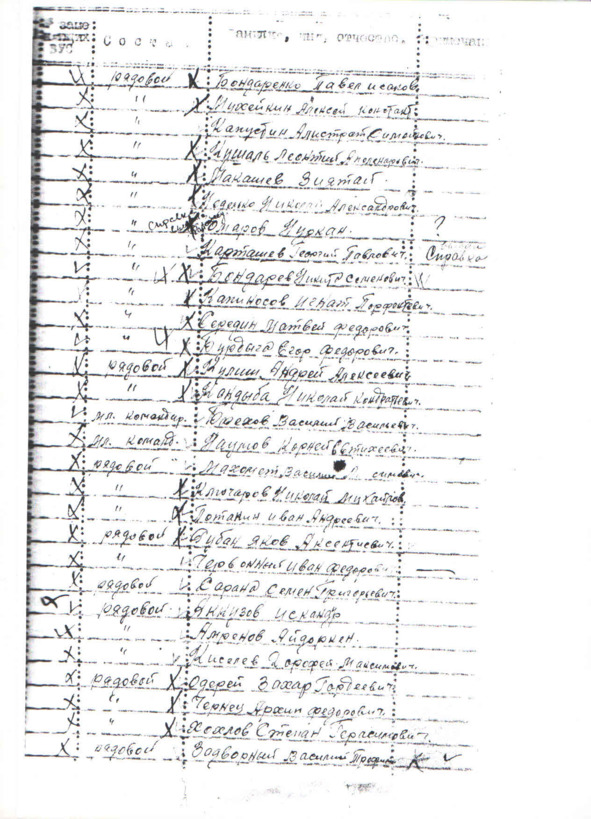 № ВУС Состав Фамилия, имя, отчество.
рядовой Бондаренко Павел Исаков.
" Михейкин Алексей Констант.
" Капустин Алистрат Симонович.
" Кушаль Леонтий Александрович.
" Макашев Зидтай
" Николай Александрович
Омаров Нуркан. ?
" Карташев Георгий Павлович. Справка
" Бондарев Никит Семенович.
" Капиносов Игнат Порфентьевич.
" Середин Матвей Федорович
" Бурдыга Егор Федорович.
рядовой Кулиш Андрей Алексеевич
" Кандыба Николай Кондратьевич.
мл. командир. Орехов Василий Васильевич.
мл. команд. Наумов Корней Евтихеевич.
рядовой Махомет Василий
" Ключаров Николай Михайлов.
" Потанин Иван Андреевич.
рядовой Рубан Яков Аксентиевич.
" Червонный Иван Федоров.
рядовой Саранд Семен Григорьевич.
рядовой Яккузов Искандр
" Амренов Айдоркен.
" Киселев Дорофей Максимович.
рядовой Одерей Захар Гордеевич
" Чернец Архип Федорович.
" Хохлов Степан Герасимович.
рядовой Задворный Василий Трофим